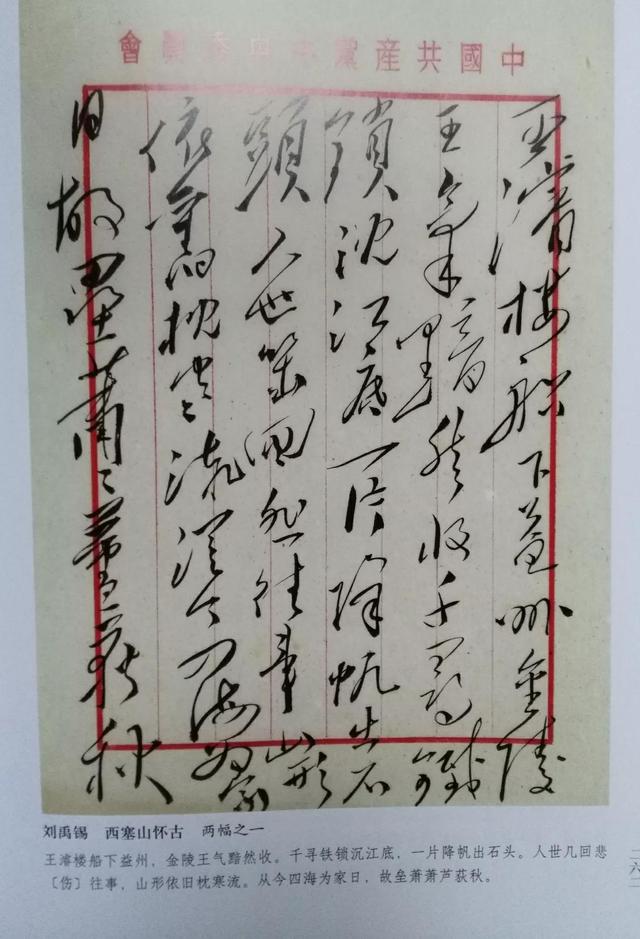 中國共産黨中央委員會
王濬樓船下益州金陵
王氣黯然收千尋鐵
鎖沈江底一片降帆出石
頭人世幾回悲往事山形
依舊枕寒流從今四海為家
日故壘蕭々蘆荻秋
刘禹锡 西塞山怀古 两幅之一
王濬楼船下益州，金陵王气黯然收。千寻铁锁沉江底，一片降帆出石头。人世几回悲
〔伤〕往事，山形依旧枕寒流。从今四海为家日，故垒萧萧芦荻秋。
二六二